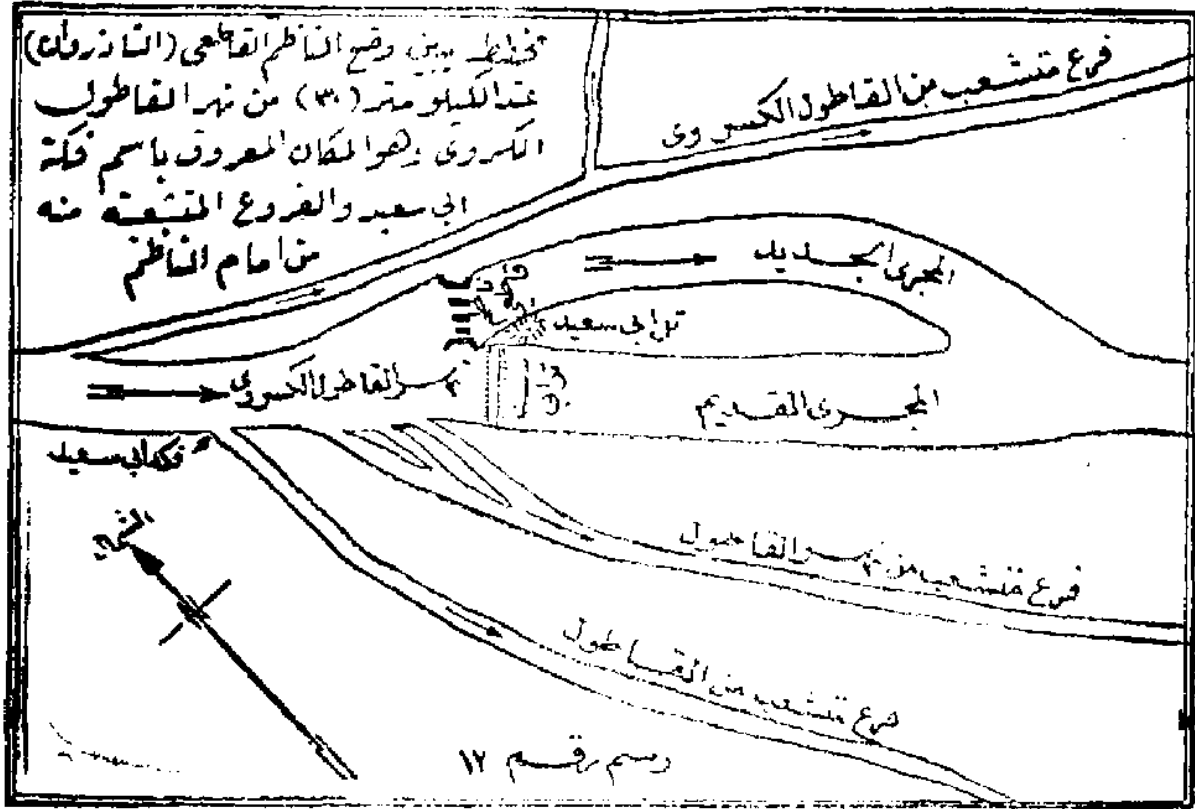 تخطيط يبين وضع الناظم القاطعي (الشاذروان)
عند الكيلومتر (٣٠) من نهر القاطول
الكسروي وهو المكان المعروف باسم فكة
ابي سعيد والفروع المتشعبة منه
من امام الناظم
فرع متشعب من القاطول الكسروي
المجرى الجديد
تل ابي سعيد
نهر القاطول الكسروي
المجرى القديم
فكة ابي سعيد
الشمال
فرع متشعب من نهر القاطول
فرع متشعب من القاطول
رسم رقم ١٧